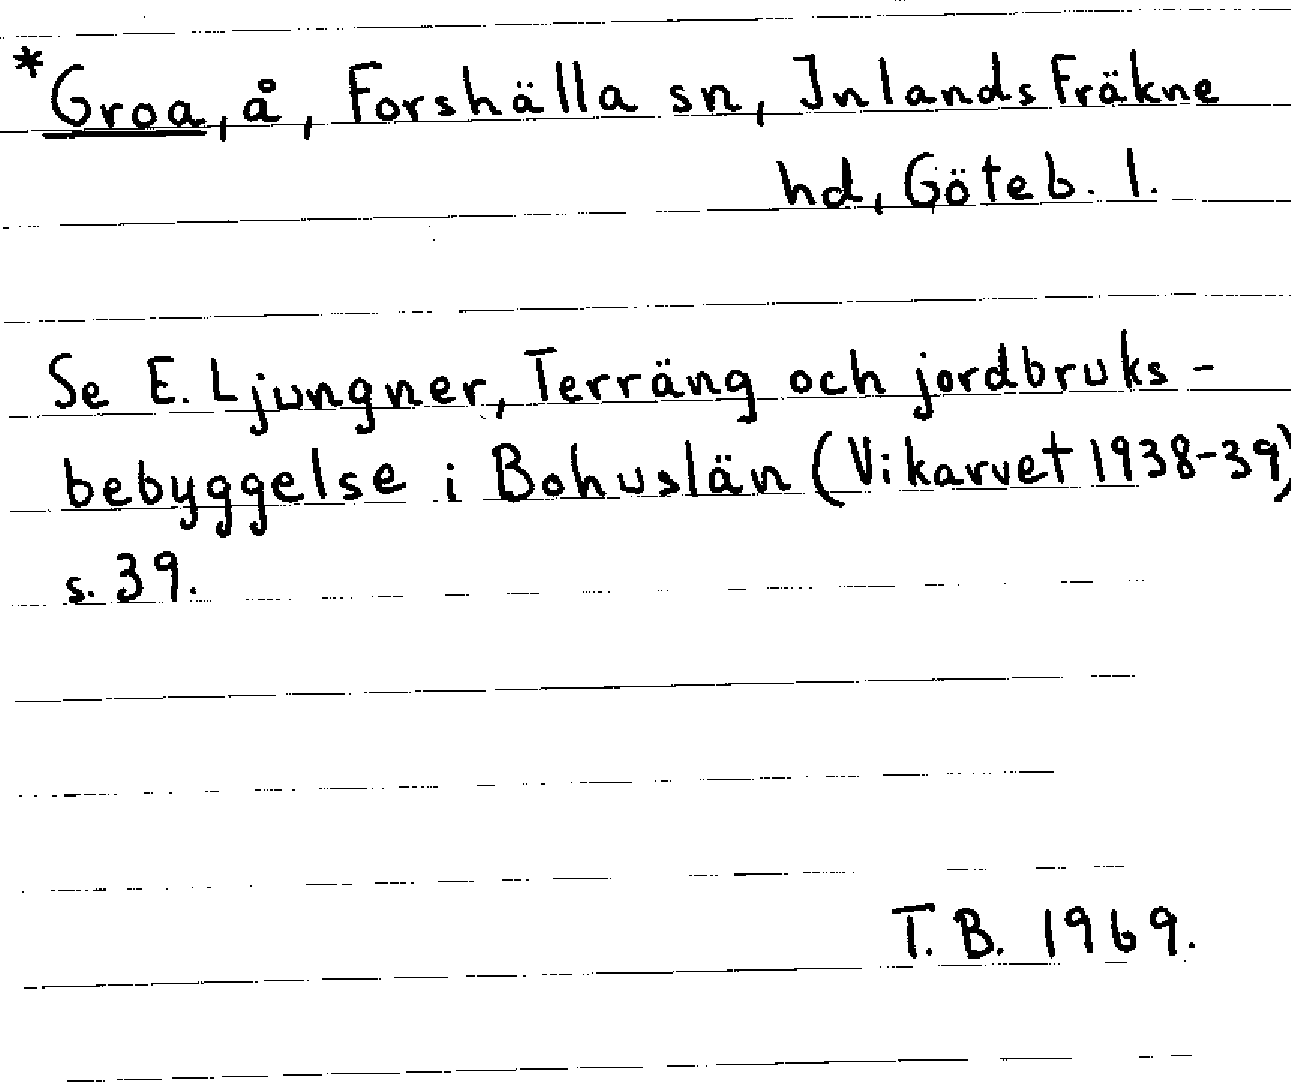 *Groa, å, Forshälla sn, Inlands Fräkne
hd, Göteb. l.
Se E. Ljungner, Terräng och jordbruks-
bebyggelse i Bohuslän (Vikarvet 1938-39)
s. 39.
T. B. 1969.